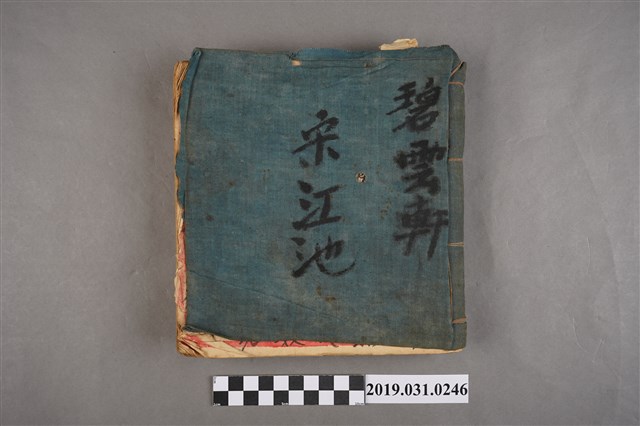 碧雲軒
宋江池
2019.031.0246